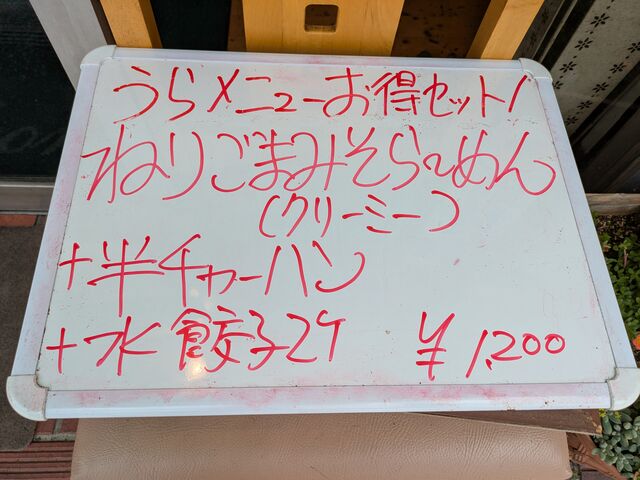 うらメニューお得セット!
ねりごまみそらーめん
(クリーミー)
+半チャーハン
+水餃子2ケ ¥1,200